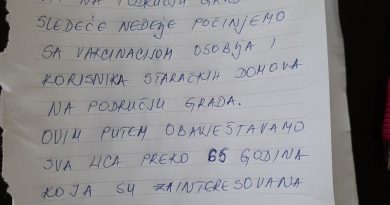 NA PODRUČJU GRADA
SLEDEĆE NEDELJE POČINJEMO
SA VAKCINACIJOM OSOBLJA I
KORISNIKA STARAČKIH DOMOVA
NA PODRUČJU GRADA.
OVIM PUTEM OBAVEŠTAVAMO
SVA LICA PREKO 65 GODINA
KOJA SU ZAINTERESOVANA